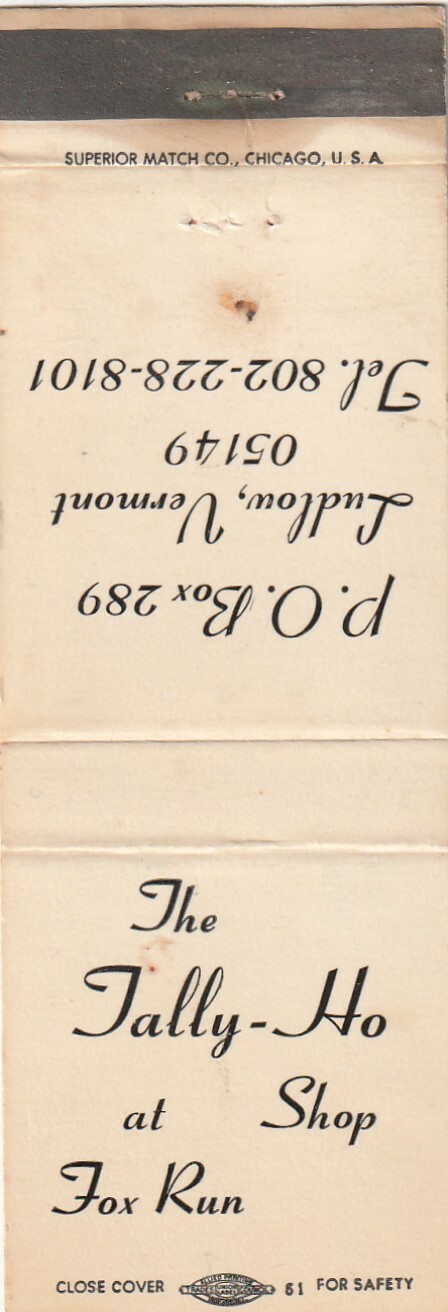 SUPERIOR MATCH CO., CHICAGO, U. S. A.
P. O. Box 289
Ludlow, Vermont
05149
Tel. 802-228-8101
The
Tally-Ho
at Shop
Fox Run
CLOSE COVER ALLIED PRINTING TRADES UNION LABEL COUNCIL 61 FOR SAFETY